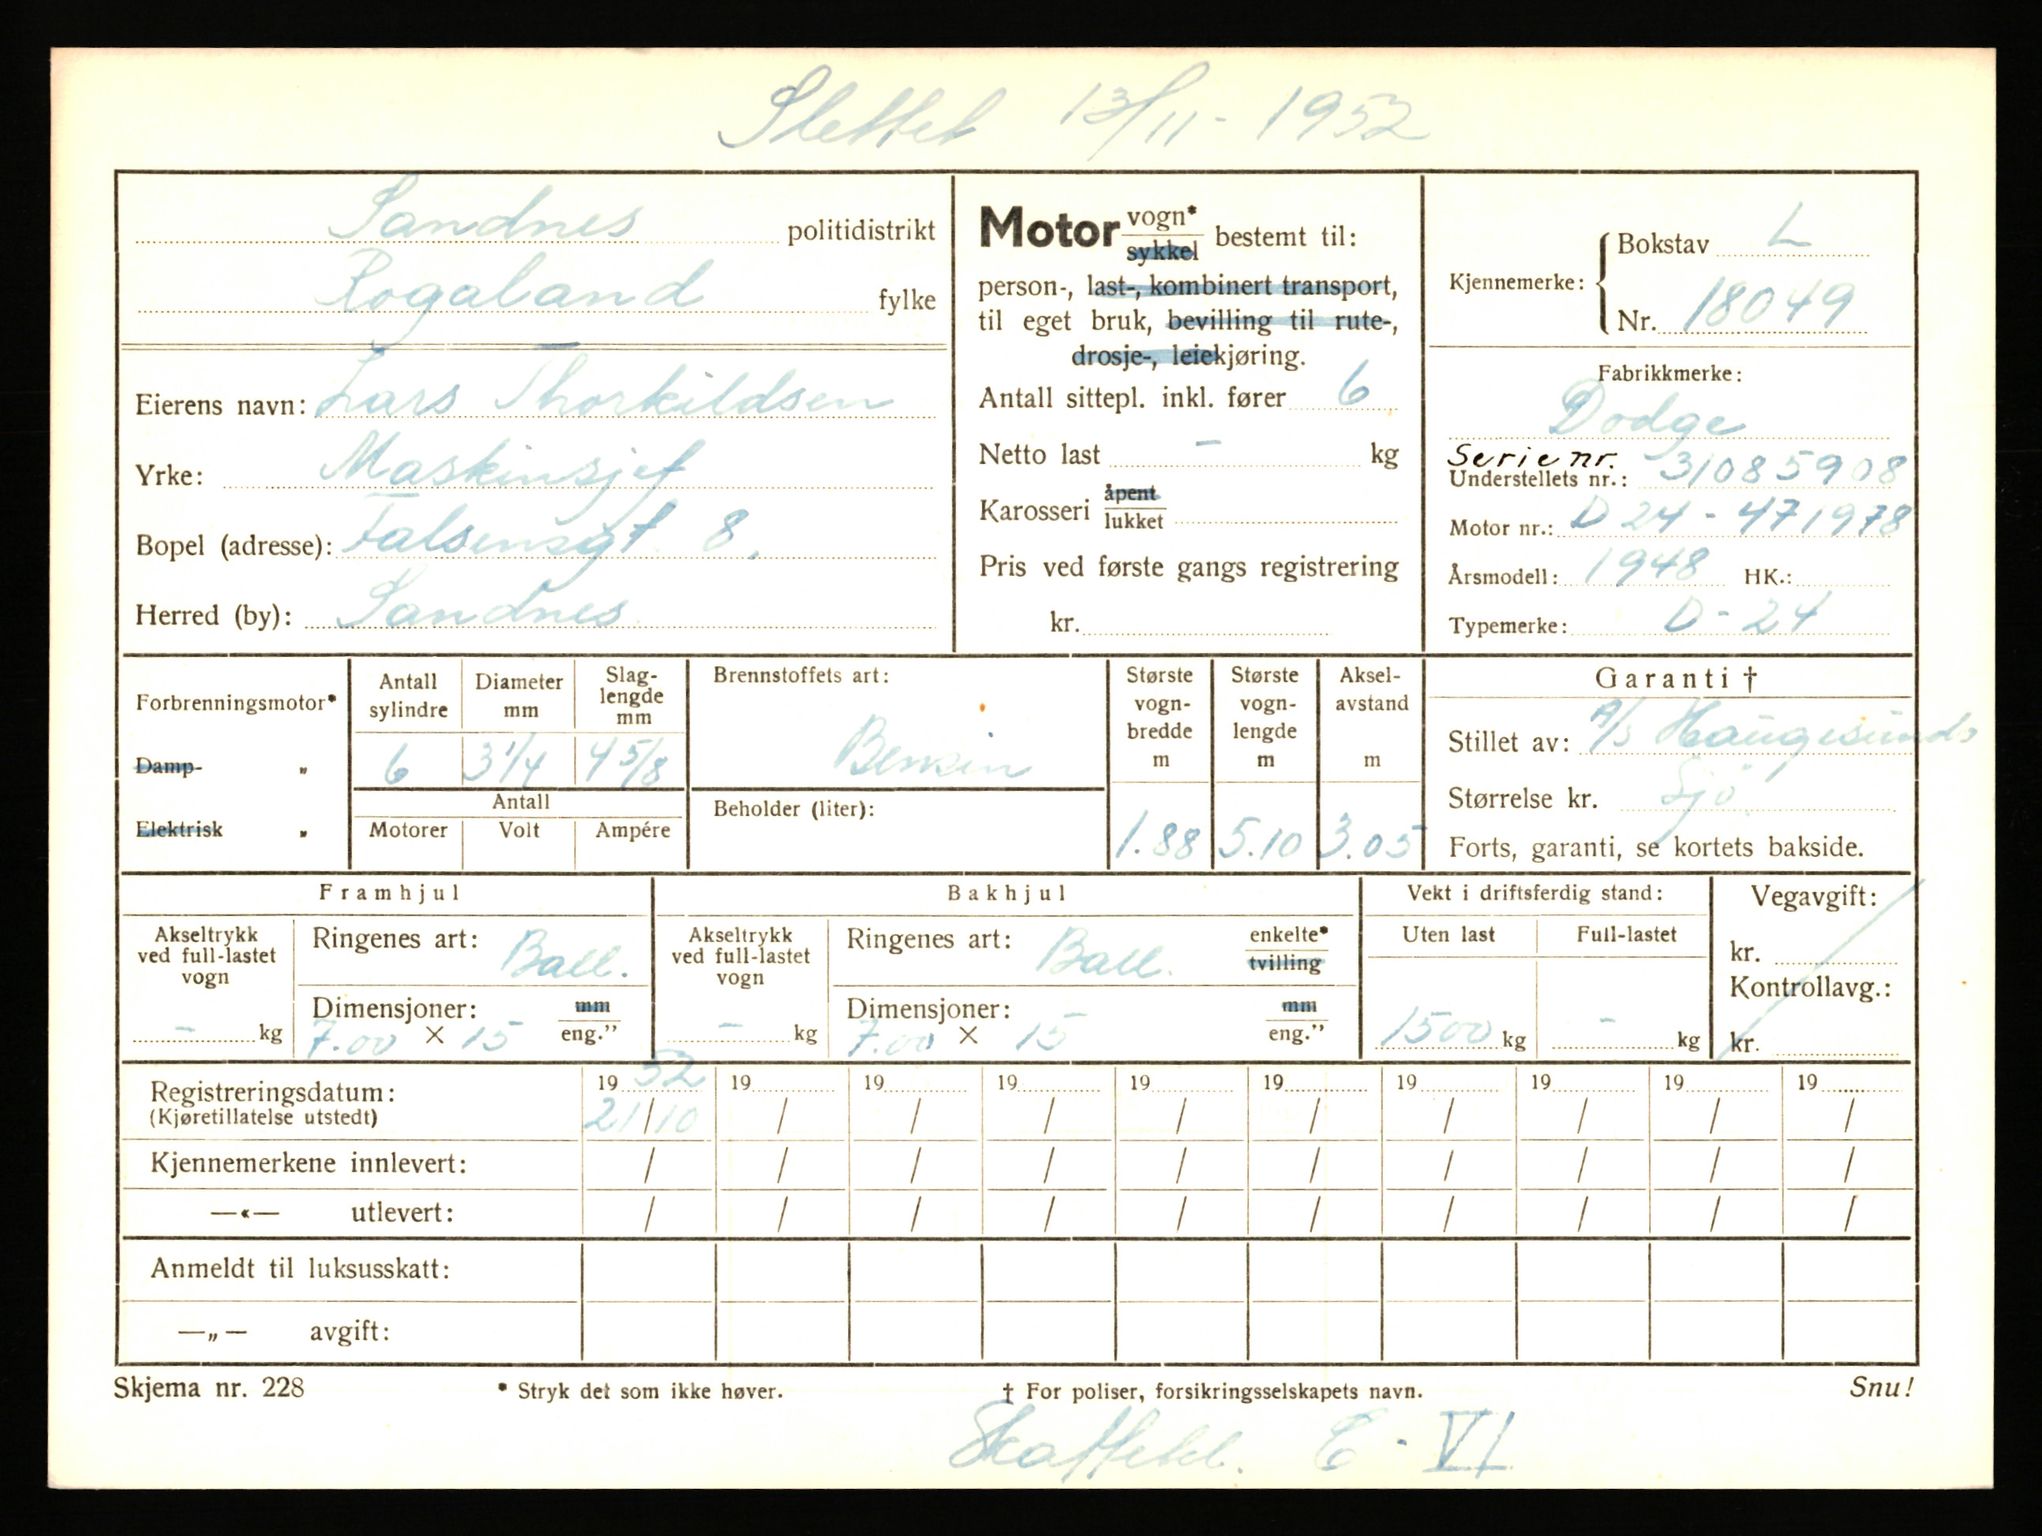 Slettet 13/11 - 1952
Sandnes politidistrikt
Rogaland fylke
Eierens navn: Lars Thorkildsen
Yrke: Maskinsjef
Bopel (adresse): Falsensgt. 8.
Herred (by): Sandnes
Motor vogn* sykkel bestemt til:
person-, last-, kombinert transport,
til eget bruk, bevilling til rute-,
drosje-, leiekjøring.
Antall sittepl. inkl. fører 6
Netto last - kg
Karosseri åpent lukket
Pris ved første gangs registrering
kr.
Kjennemerke: Bokstav L
Nr. 18049
Fabrikkmerke:
Dodge
Serienr.
Understellets nr.: 31085908
Motor nr.: D 24 - 471978
Årsmodell: 1948 HK.:
Typemerke: D - 24
Forbrenningsmotor*
Damp- „
Elektrisk „
Antall sylindre Diameter mm Slaglengde mm
6 3 1/4 4 5/8
Antall
Motorer Volt Ampére
Brennstoffets art:
Bensin
Beholder (liter):
Største vognbredde m Største vognlengde m Akselavstand m
1.88 5.10 3.05
Garanti †
Stillet av: A/S Haugesunds
Størrelse kr. Sjö
Forts, garanti, se kortets bakside.
Framhjul
Akseltrykk ved full-lastet vogn
- kg
Ringenes art: Ball.
Dimensjoner: mm
7.00 × 15 eng.”
Bakhjul
Akseltrykk ved full-lastet vogn
- kg
Ringenes art: Ball. enkelte* tvilling
Dimensjoner: mm
7.00 × 15 eng.”
Vekt i driftsferdig stand:
Uten last Full-lastet
1500 kg - kg
Vegavgift:
kr.
Kontrollavg.:
kr.
Registreringsdatum: 19 52 19 19 19 19 19 19 19 19 19
(Kjøretillatelse utstedt) 21/10 / / / / / / / / /
Kjennemerkene innlevert: / / / / / / / / / /
—«— utlevert: / / / / / / / / / /
Anmeldt til luksusskatt:
—„— avgift:
Skjema nr. 228 * Stryk det som ikke høver. † For poliser, forsikringsselskapets navn. Snu!
C - VI